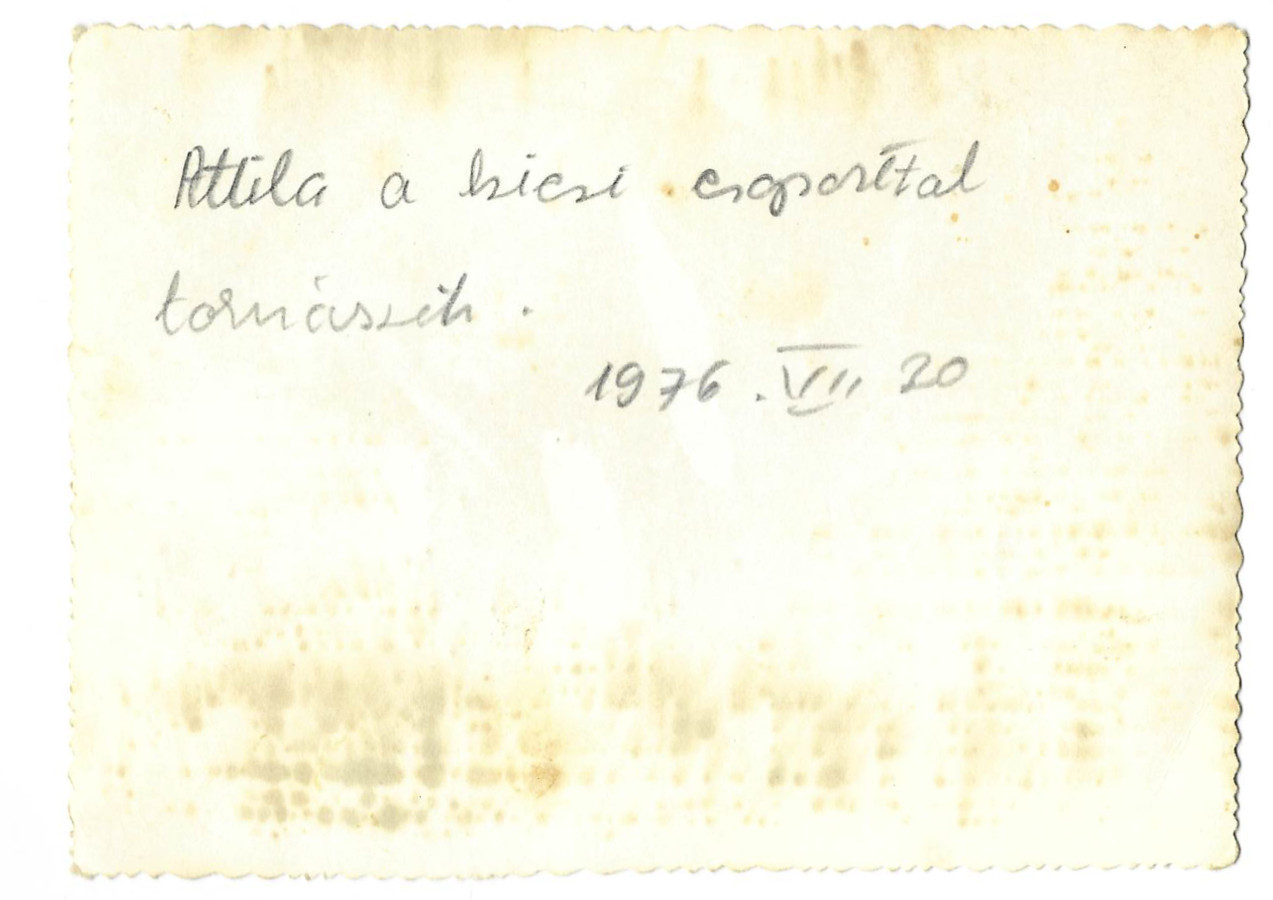 Attila a kicsi csoporttal
tornászik.
1976. VII. 20